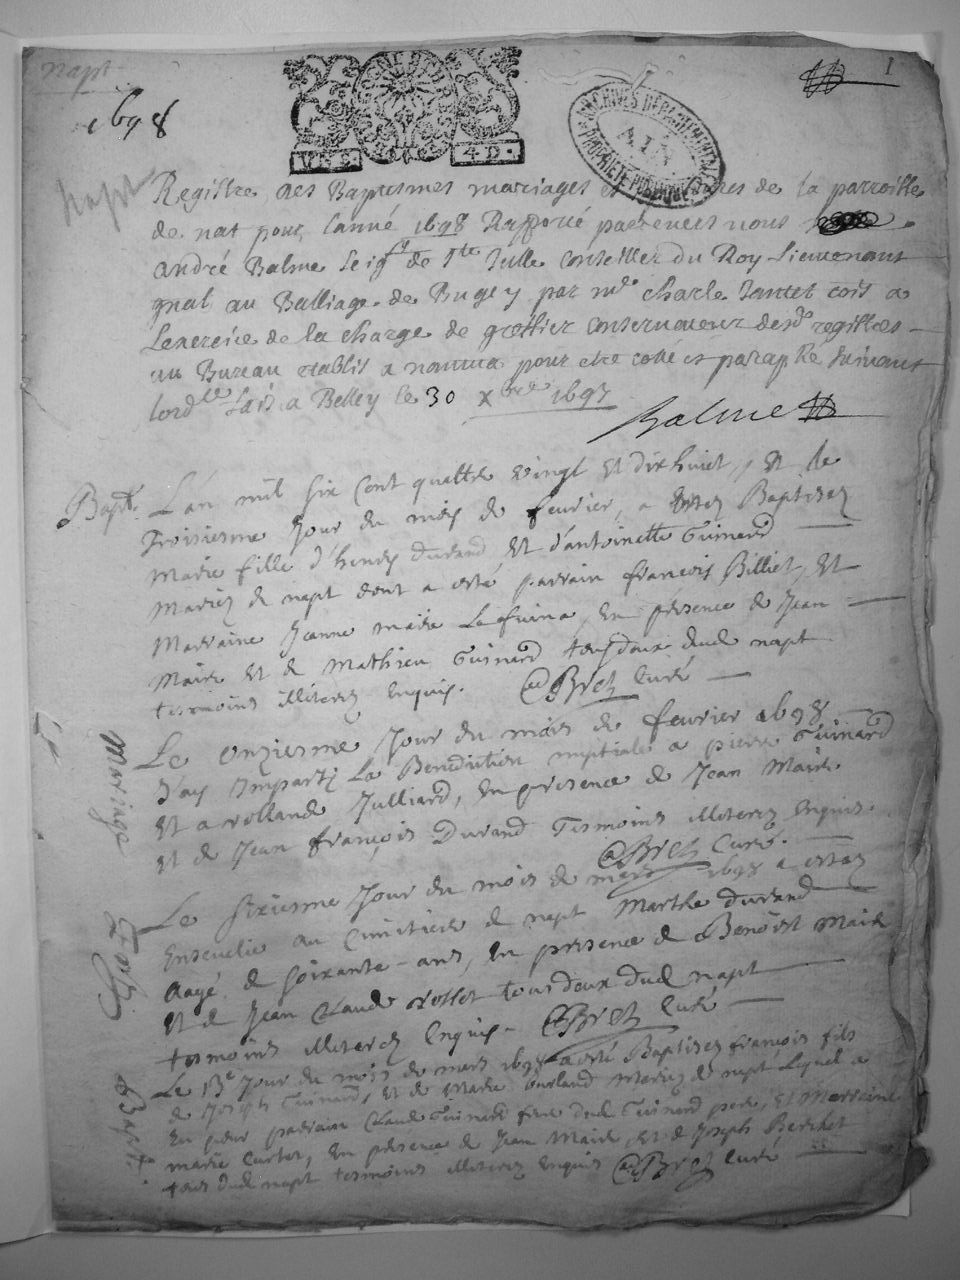 Napt
1698
1
GENERALITE
4 D.
ARCHIVES DÉPARTEMENTALES
AIN
PROPRIÉTÉ PUBLIQUE
Napt
Registre des Baptesmes mariages et de la parroisse
de nat pour lanné 1698 Rapporté pardevers nous
André Balme seigr de Ste Julle conseiller du Roy Lieutenant
gnal au Balliage de Bugey par me charle Jantet cois a
Lexercice de la charge de greffier conservateur desd registres
au Bureau etablis a nantua pour etre cotté et paraphé suivant
lordce fais a Belley le 30 xbre 1697
Balme
Bapt.
L'an mil six cent quattre vingt et dix huict, et le
troisiesme jour du mois de fevrier, a estez Baptisez
Marie fille d'henry durand et d'antoinette Guinard
Mariez de napt dont a esté parrain françois Billiet, et
Marraine Jeanne marie Lafuina, en présence de Jean
Maire et de Mathieu Guinard tous deux dud napt
tesmoins illiterez enquis. Bret Curé
Mariage
Le onziesme jour du mois de fevrier 1698
J'ay Imparty La Benediction nuptiale a pierre Guinard
et a rollande Julliard, en présence de Jean Maire
et de Jean françois Durand Tesmoins illiterez enquis.
Bret Curé.
Le sixiesme jour du mois de mars 1698 a estez
Ensevelie au Cimitiere de napt Marthe durand
aagé de soixante ans, en présence de Benoist Maire
et de Jean Claude rosset tous deux dud napt
tesmoins illiterez enquis. Bret Curé
Bapt.
Le 13e jour du mois de mars 1698 a esté Baptisez françois fils
de Joseph Guinard, et de Marie burland Mariez de napt Lequel a
Eu pour parrain Claude Guinard frere dud Guinard pere, et Marraine
marie Curtet, en présence de Jean Maire, et de Joseph Berchet
tous dud napt tesmoins illiterez enquis Bret Curé